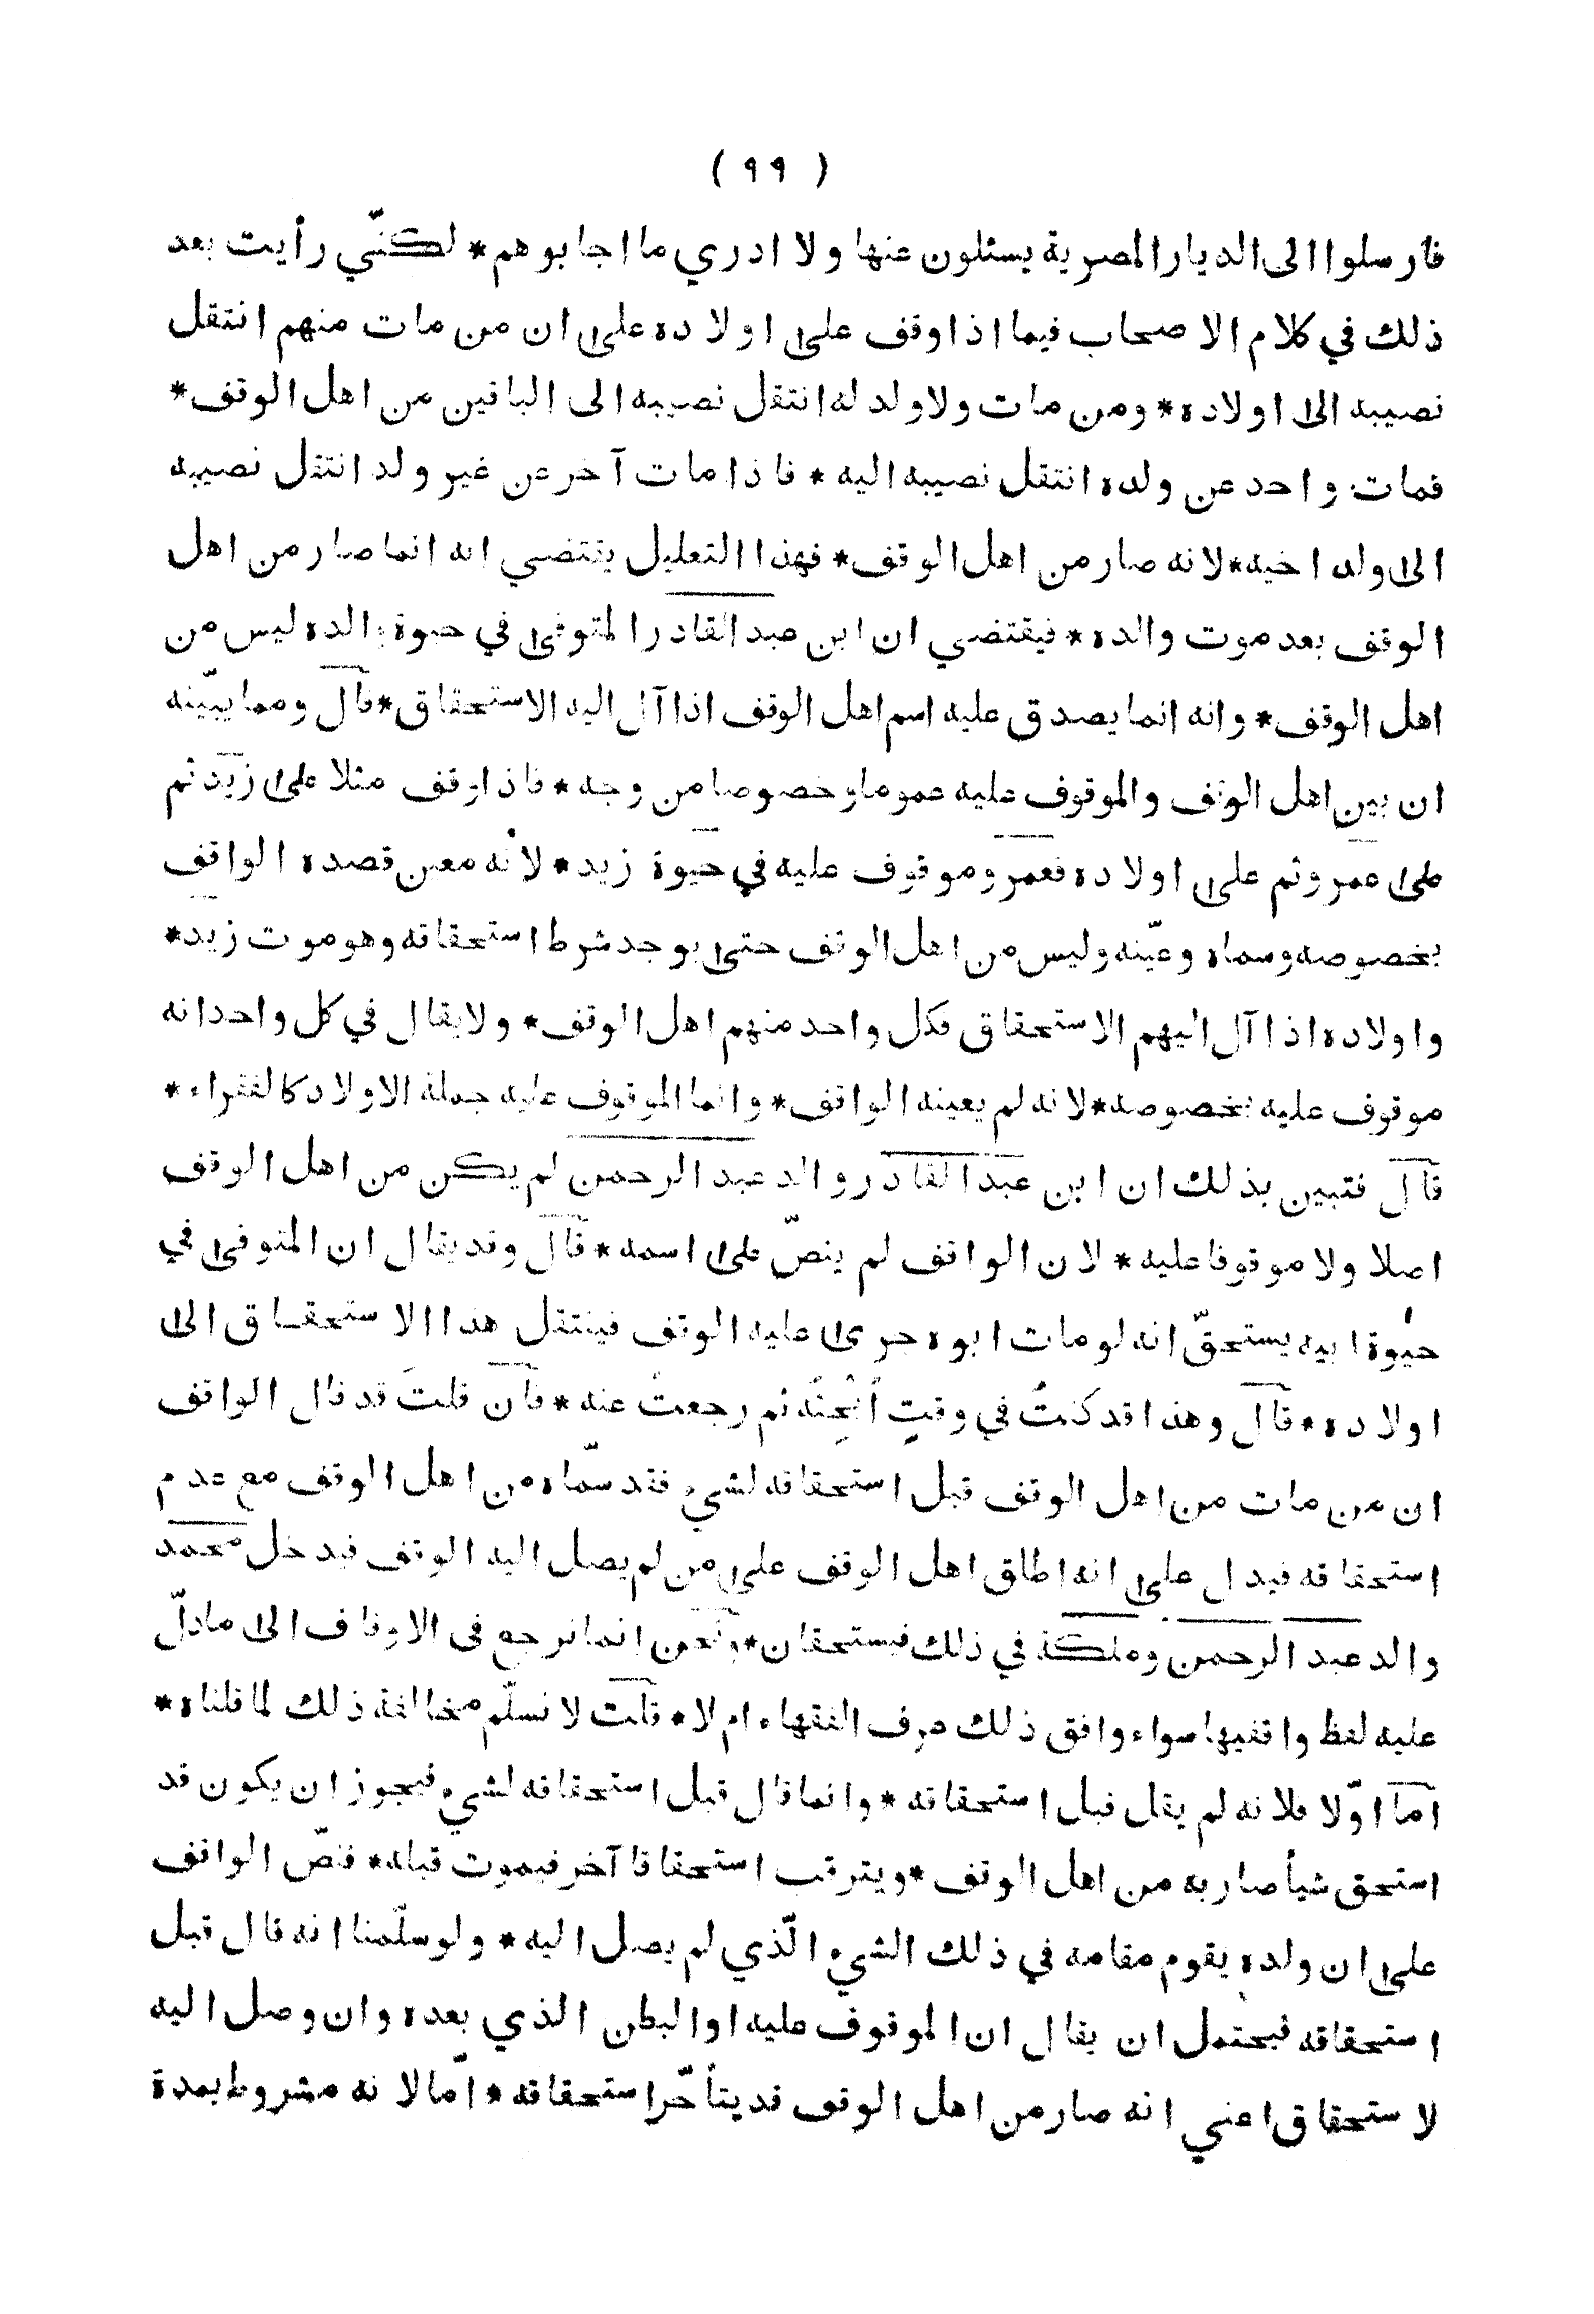 ( ٩٩ )
فارسلوا الى الديار المصرية يسئلون عنها ولا ادري ما اجابوهم* لكنّي رأيت بعد
ذلك في كلام الاصحاب فيما اذا وقف على اولاده على ان من مات منهم انتقل
نصيبه الى اولاده* ومن مات ولا ولد له انتقل نصيبه الى الباقين من اهل الوقف*
فمات واحد عن ولده انتقل نصيبه اليه* فاذا مات آخر عن غير ولد انتقل نصيبه
الى ولد اخيه* لانه صار من اهل الوقف* فهذا التعليل يقتضي انه انما صار من اهل
الوقف بعد موت والده* فيقتضي ان ابن عبد القادر المتوفى في حيوة والده ليس من
اهل الوقف* وانه انما يصدق عليه اسم اهل الوقف اذا آل اليه الاستحقاق* قال ومما يبيّنه
ان بين اهل الوقف والموقوف عليه عموما وخصوصا من وجه* فاذا وقف مثلا على زيد ثم
على عمرو ثم على اولاده فعمرو موقوف عليه في حيوة زيد* لانه معين قصده الواقف
بخصوصه وسماه وعيّنه وليس من اهل الوقف حتى يوجد شرط استحقاقه وهو موت زيد*
واولاده اذا آل اليهم الاستحقاق فكل واحد منهم اهل الوقف* ولا يقال في كل واحد انه
موقوف عليه بخصوصه* لانه لم يعينه الواقف* وانما الموقوف عليه جملة الاولاد كالفقراء*
قال فتبين بذلك ان ابن عبد القادر والد عبد الرحمن لم يكن من اهل الوقف
اصلا ولا موقوفا عليه* لان الواقف لم ينصّ على اسمه* قال وقد يقال ان المتوفى في
حيوة ابيه يستحقّ انه لو مات ابوه جرى عليه الوقف فينتقل هذا الاستحقاق الى
اولاده* قال وهذا قد كنتُ في وقتٍ أبحثه ثم رجعت عنه* فان قلتَ قد قال الواقف
ان من مات من اهل الوقف قبل استحقاقه لشيء فقد سمّاه من اهل الوقف مع عدم
استحقاقه فيدل على انه اطلق اهل الوقف على من لم يصل اليه الوقف فيدخل محمد
والد عبد الرحمن وملكة في ذلك فيستحقان* ونحن انما نرجع في الاوقاف الى ما دلّ
عليه لفظ واقفيها سواء وافق ذلك عرف الفقهاء ام لا* قلت لا نسلّم مخالفة ذلك لما قلناه*
اما اوّلا فلانه لم يقل قبل استحقاقه* وانما قال قبل استحقاقه لشيء فيجوز ان يكون قد
استحق شيأ صار به من اهل الوقف* ويترقب استحقاقا آخر فيموت قبله* فنصّ الواقف
على ان ولده يقوم مقامه في ذلك الشيء الّذي لم يصل اليه* ولو سلّمنا انه قال قبل
استحقاقه فيحتمل ان يقال ان الموقوف عليه او البطن الذي بعده وان وصل اليه
لاستحقاق اعني انه صار من اهل الوقف قد يتأخّر استحقاقه* امّا لانه مشروط بمدة